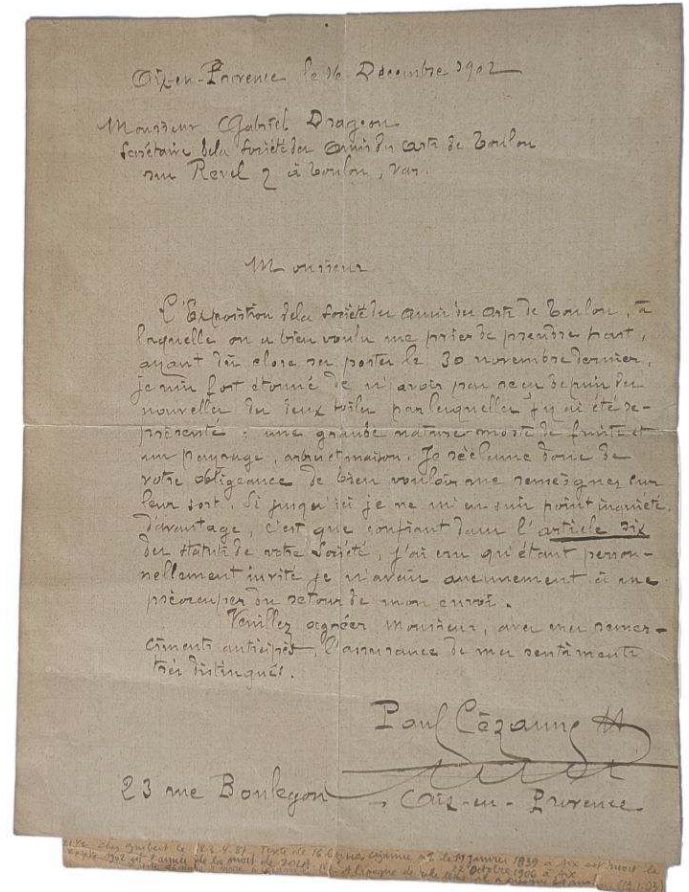 Aix-en-Provence le 16 Décembre 1902
Monsieur Gabriel Drageon
Secrétaire de la Société des Amis des Arts de Toulon
rue Revel 2 à Toulon, Var.
Monsieur
L'Exposition de la Société des Amis des Arts de Toulon, à
laquelle on a bien voulu me prier de prendre part,
ayant dû clore ses portes le 30 novembre dernier,
je suis fort étonné de n'avoir pas reçu depuis des
nouvelles des deux toiles par lesquelles j'y ai été re-
présenté : une grande nature-morte de fruits et
un paysage, arbres et maison. Je réclame donc de
votre obligeance de bien vouloir me renseigner sur
leur sort. Si jusqu'ici je ne m'en suis point inquiété
davantage, c'est que confiant dans l'article six
des statuts de votre Société, j'ai cru qu'étant person-
nellement invité je n'avais aucunement à me
préoccuper du retour de mon envoi.
Veuillez agréer Monsieur, avec mes remer-
ciments anticipés, l'assurance de mes sentiments
très distingués.
Paul Cézanne
23 rue Boulegon
Aix-en-Provence
Cézanne né le 19 Janvier 1839 à Aix est mort le
1902 est l'année de la mort de ZOLA. 22 Octobre 1906 à Aix